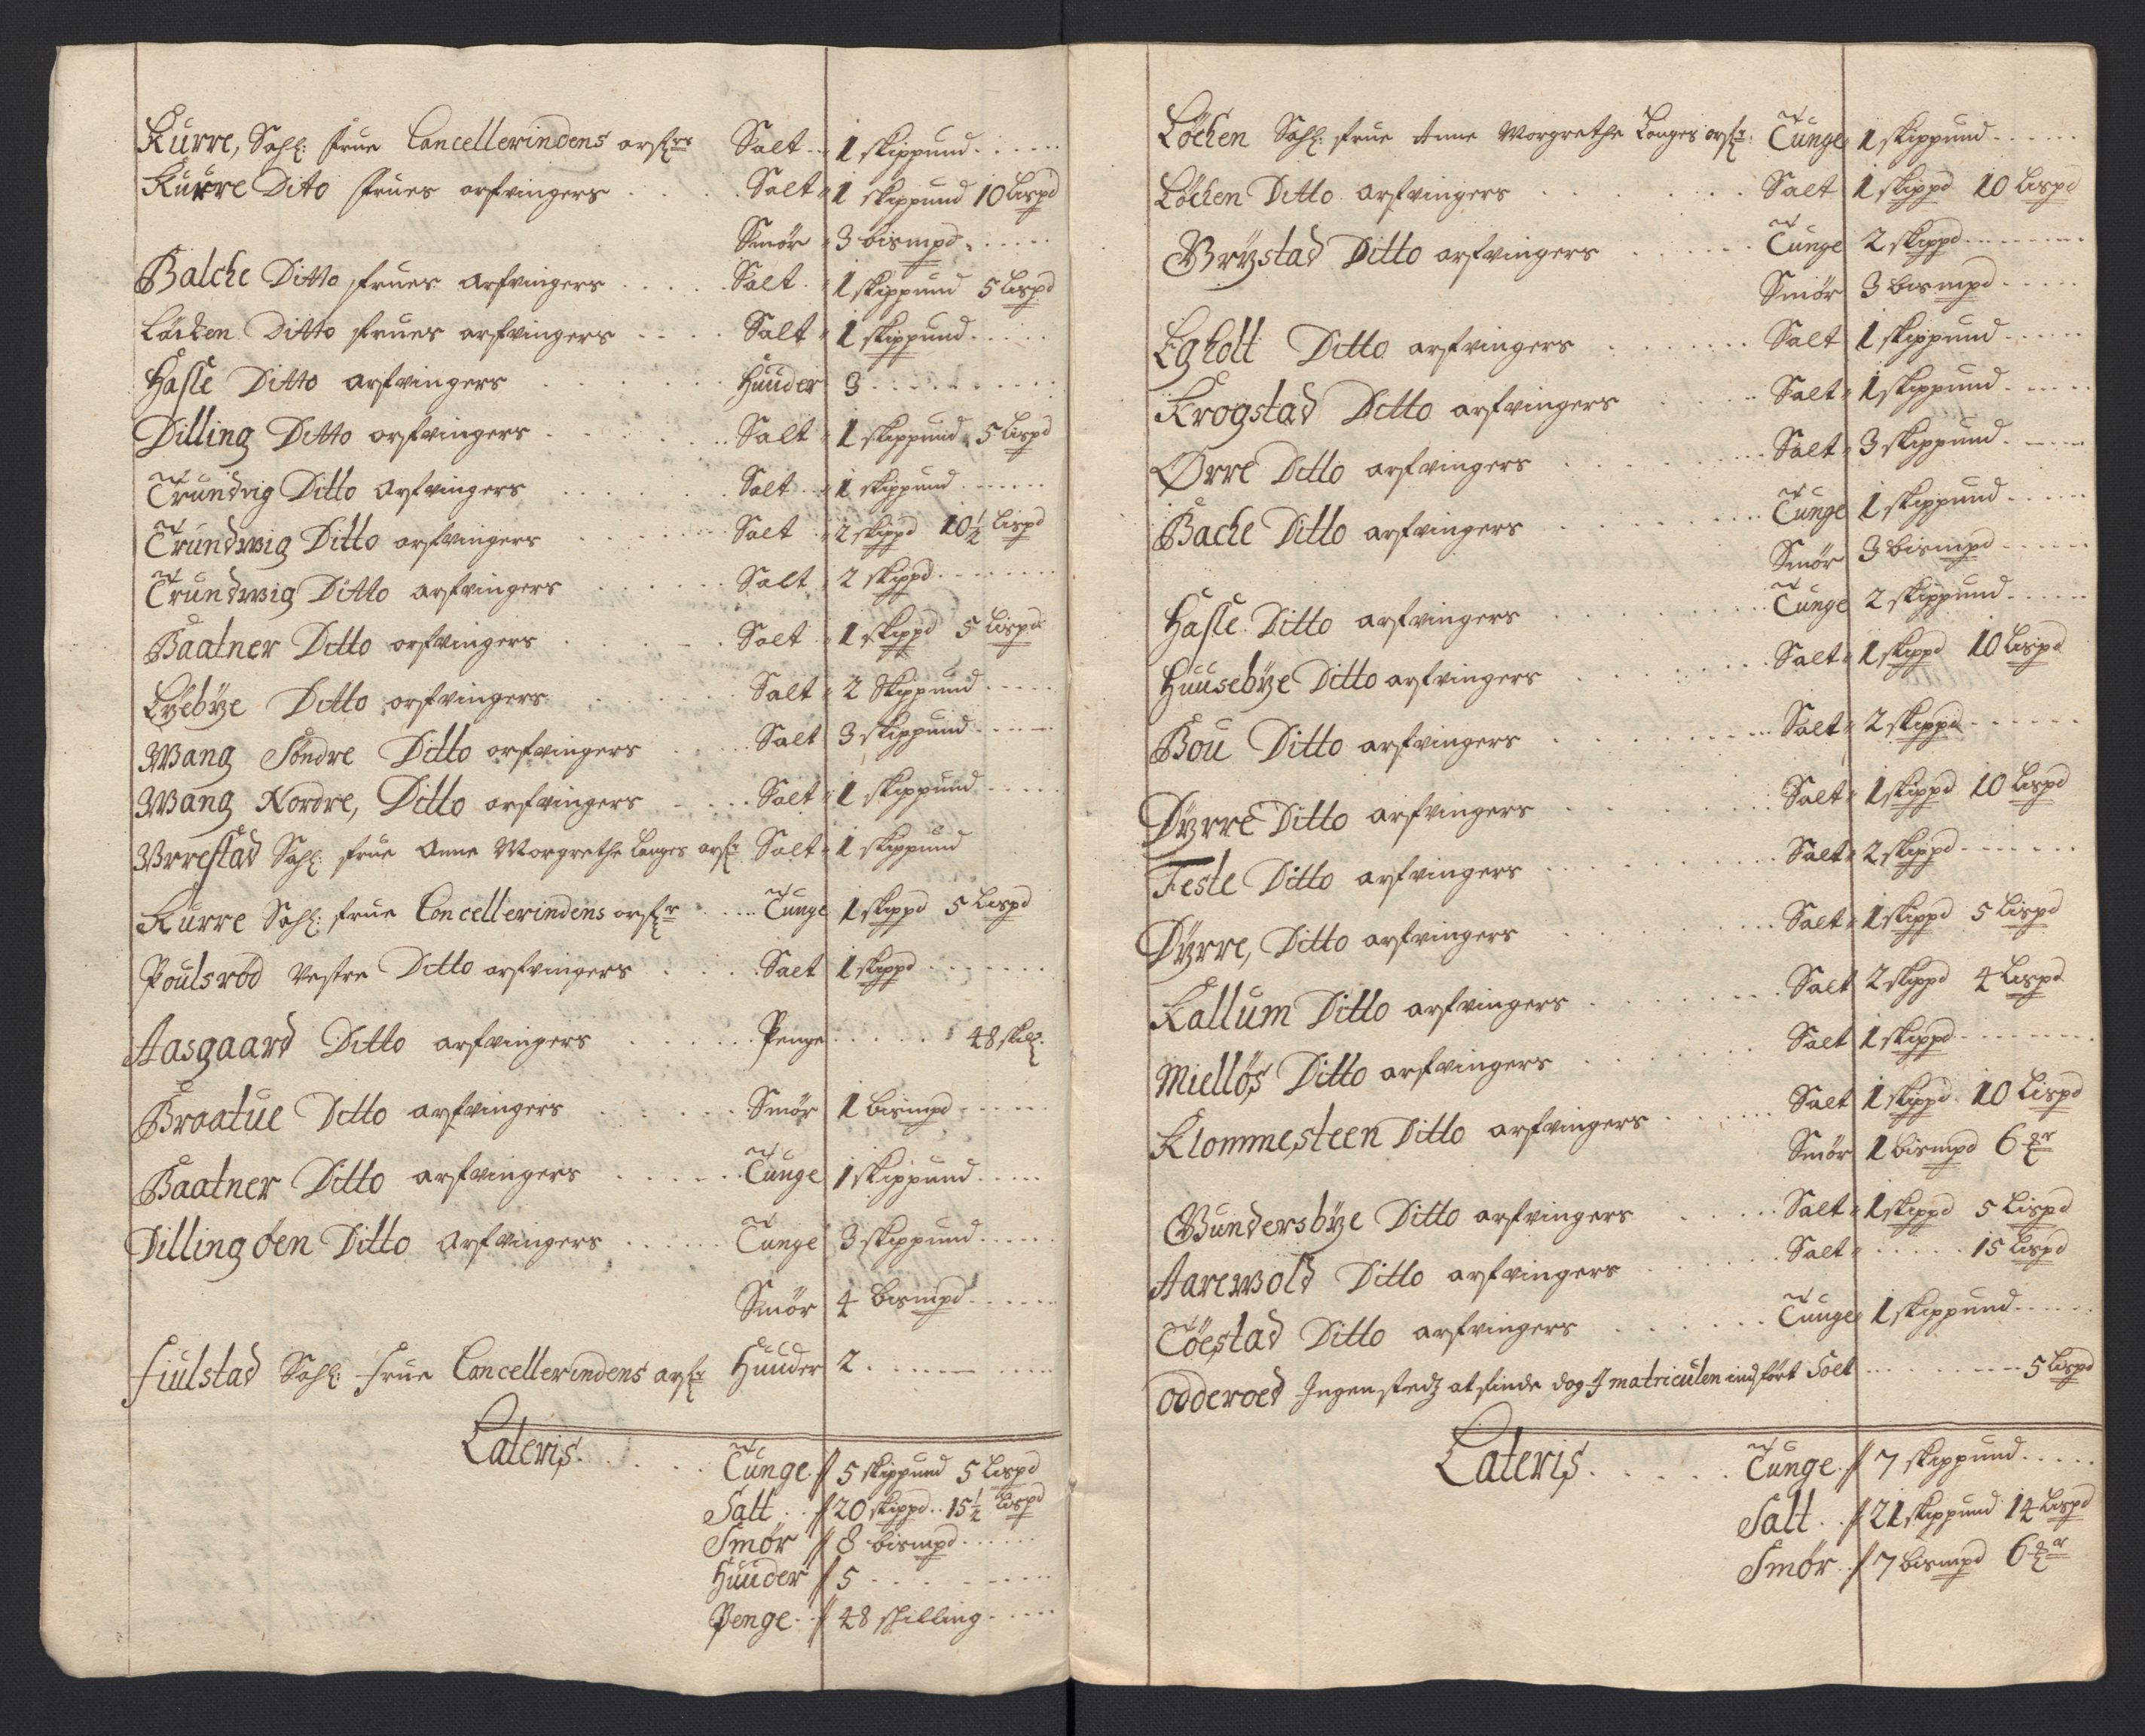 Kurre, Sahl: frue Cancellerindens arfrs Salt 1 skippund
Kurre Dito frues arfvingers Salt 1 skippund 10 Lispd
Smør 3 bismpd
Balche Ditto frues arfvingers Salt 1 skippund 5 Lispd
Löcken Ditto frues arfvingers Salt 1 skippund
Hasle Ditto arfvingers Huuder 3
Dilling Ditto arfvingers Salt 1 skippund 5 Lispd
Trundvig Ditto Arfvingers Salt 1 skippund
Trundwig Ditto arfvingers Salt 2 skippd 10½ Lispd
Trundwig Ditto arfvingers Salt 2 skippd
Baatner Ditto arfvingers Salt 1 skippd 5 Lispd
Lyebÿe Ditto arfvingers Salt 2 Skippund
Wang Söndre Ditto arfvingers Salt 3 skippund
Wang Nordre, Ditto arfvingers Salt 1 skippund
Wrrestad Sahl: frue Anne Margrethe Langes arfr Salt 1 skippund
Kurre Sahl: frue Cancellerindens arfr Tunge 1 skippd 5 Lispd
Poulsröd Vestre Ditto arfvingers Salt 1 skippd
Aasgaard Ditto arfvingers Penge 48 skill:
Braatue Ditto arfvingers Smør 1 bismpd
Baatner Ditto arfvingers Tunge 1 skippund
Dillingöen Ditto Arfvingers Tunge 3 skippund
Smør 4 bismpd
Fiulstad Sahl: frue Cancellerindens arfr Huuder 2
Lateris Tunge 5 skippund 5 Lispd
Salt 20 skippd 15½ Lispd
Smør 8 bismpd
Huuder 5
Penge 48 skilling
Löchen Sahl: frue Anne Margrethe Langes arfr: Tunge 1 skippund
Löchen Ditto arfvingers Salt 1 skippd 10 Lispd
Brÿstad Ditto arfvingers Tunge 2 skippd
Smør 3 bismpd
Egholt Ditto arfvingers Salt 1 skippund
Krogstad Ditto arfvingers Salt 1 skippund
Ørre Ditto arfvingers Salt 3 skippund
Bache Ditto arfvingers Tunge 1 skippund
Smør 3 bismpd
Hasle Ditto arfvingers Tunge 2 skippund
Huusebÿe Ditto arfvingers Salt 1 skippd 10 Lispd
Bou Ditto arfvingers Salt 2 skippd
Dÿrre Ditto arfvingers Salt 1 skippd 10 Lispd
Feste Ditto arfvingers Salt 2 skippd
Dÿrre, Ditto arfvingers Salt 1 skippd 5 Lispd
Kallum Ditto arfvingers Salt 2 skippd 4 Lispd
Miellös Ditto arfvingers Salt 1 skippd
Klommesteen Ditto arfvingers Salt 1 skippd 10 Lispd
Smør 1 bismpd 6 mr
Gundersbÿe Ditto arfvingers Salt 1 skippd 5 Lispd
Aarewold Ditto arfvingers Salt 15 Lispd
Töestad Ditto arfvingers Tunge 1 skippund
odderoed Ingenstedz at finde dog I matriculen indfört Salt 5 Lispd
Lateris Tunge 7 skippund
Salt 21 skippund 14 Lispd
Smør 7 bismpd 6 mr